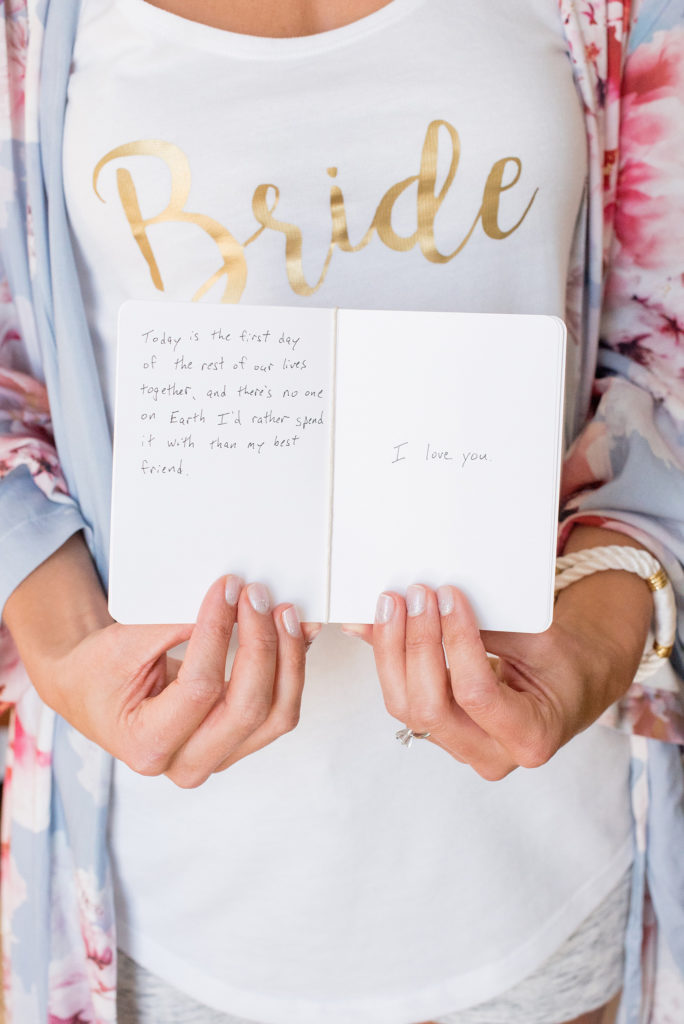 Bride
Today is the first day
of the rest of our lives
together, and there's no one
on Earth I'd rather spend
it with than my best
friend.
I love you.